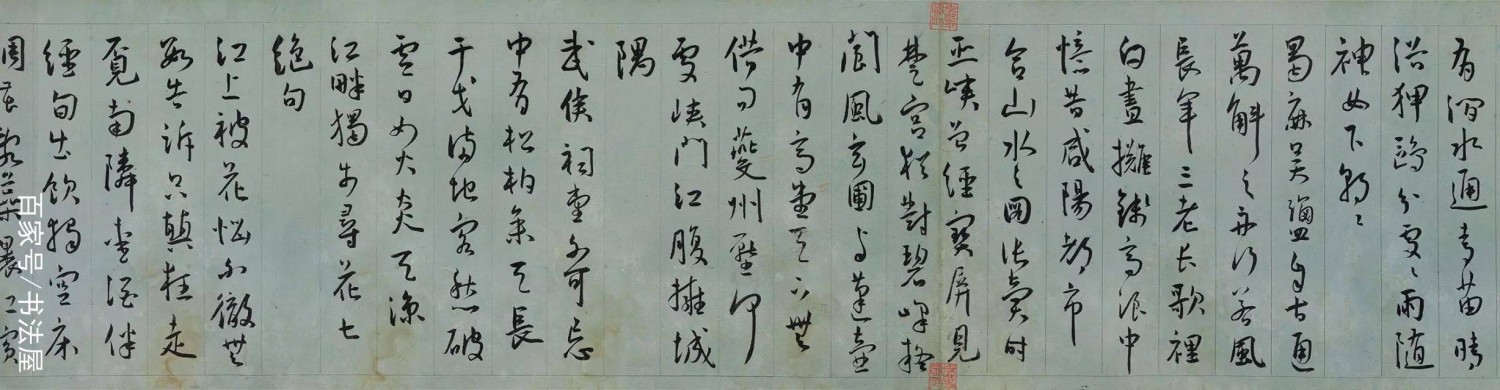 有澗水通青苗晴
浴狎鷗分處處雨隨
神女下朝朝
蜀麻吳鹽自古通
萬斛之舟行若風
長年三老長歌裡
白晝攤錢高浪中
憶昔咸陽都市
合山水之圖張賣時
巫峽曾經寶屏見
楚宮猶對碧峰疑
閬風玄圃與蓬壺
中有高堂天下無
借問夔州壓何
處峽門江腹擁城
隅
武侯祠堂不可忘
中有松柏參天長
干戈滿地客愁破
雲日如火炎天涼
江畔獨步尋花七
絕句
江上被花惱不徹無
處告訴只顛狂走
覓南隣愛酒伴
經旬出飲獨空床
稠花亂蕊裹江濱
百家号/书法屋